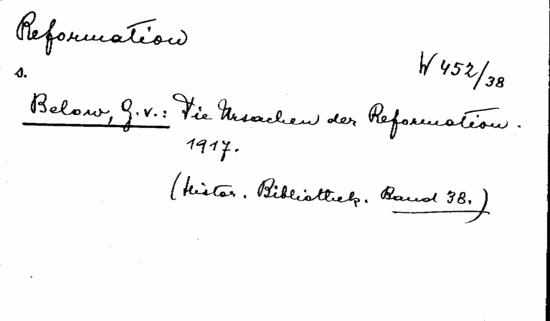 Reformation
W 452/38
s.
Below, G. v.: Die Ursachen der Reformation.
1917.
(Histor. Bibliothek. Band 38.)